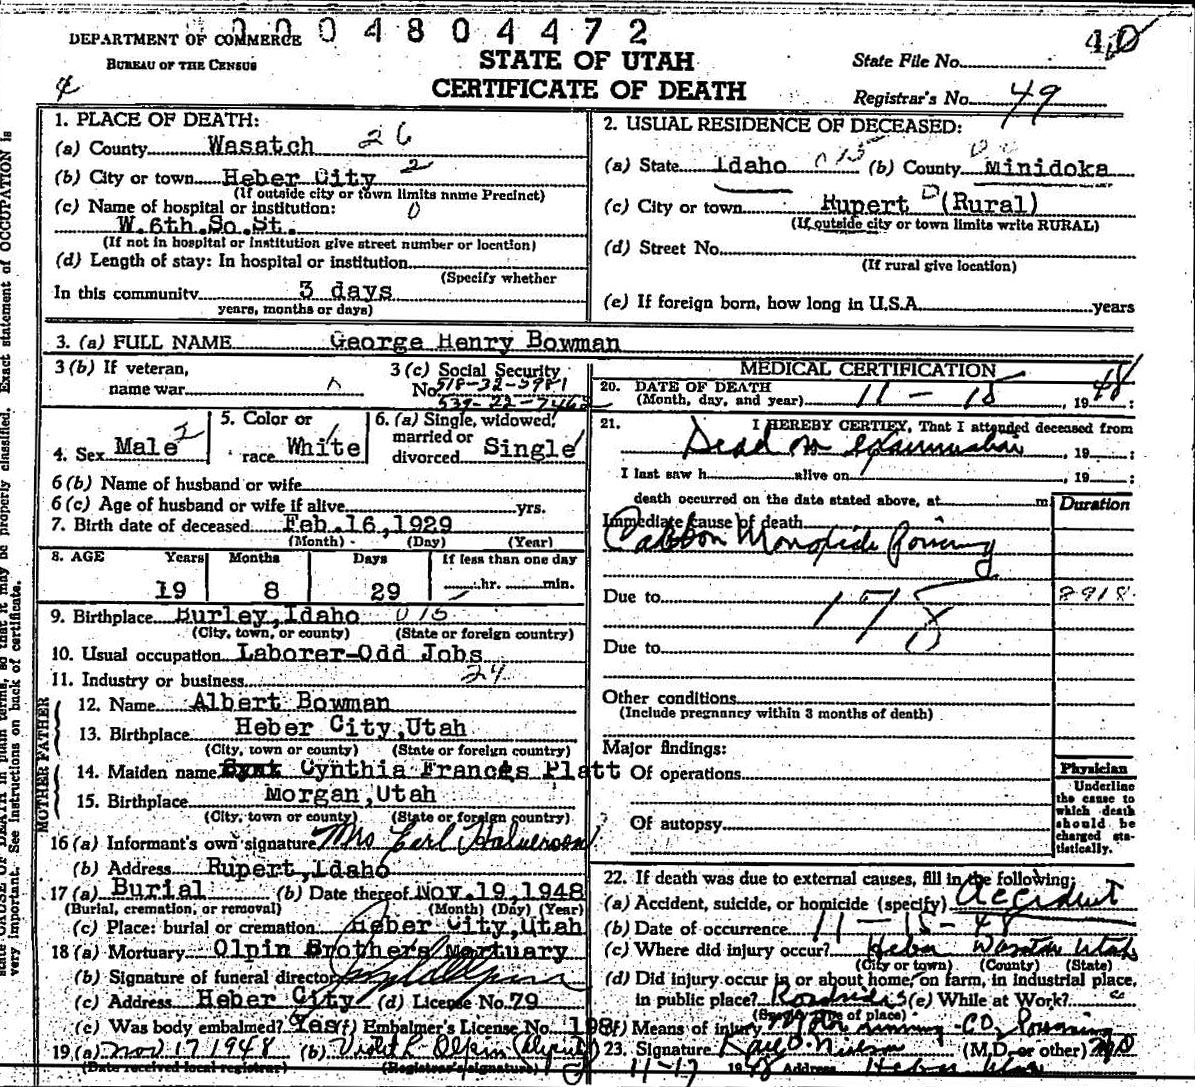 0004804472
DEPARTMENT OF COMMERCE
BUREAU OF THE CENSUS
STATE OF UTAH
CERTIFICATE OF DEATH
40
State File No.
Registrar's No. 49
1. PLACE OF DEATH:
26
(a) County Wasatch
(b) City or town Heber City 2
(If outside city or town limits name Precinct)
(c) Name of hospital or institution: 0
W. 6th. So. St.
(If not in hospital or institution give street number or location)
(d) Length of stay: In hospital or institution
(Specify whether
In this community 3 days
years, months or days)
2. USUAL RESIDENCE OF DECEASED:
(a) State Idaho 015 (b) County Minidoka
(c) City or town Rupert (Rural)
(If outside city or town limits write RURAL)
(d) Street No.
(If rural give location)
(e) If foreign born, how long in U.S.A. years
3. (a) FULL NAME George Henry Bowman
3 (b) If veteran,
name war
3 (c) Social Security
No. 518-32-5981
539-22-7462
4. Sex Male 2
5. Color or
race White
6. (a) Single, widowed,
married or
divorced Single
6 (b) Name of husband or wife
6 (c) Age of husband or wife if alive yrs.
7. Birth date of deceased Feb. 16, 1929
(Month) (Day) (Year)
8. AGE Years Months Days If less than one day
19 8 29 hr. min.
9. Birthplace Burley, Idaho 015
(City, town, or county) (State or foreign country)
10. Usual occupation Laborer-Odd Jobs
11. Industry or business 24
FATHER
12. Name Albert Bowman
13. Birthplace Heber City, Utah
(City, town or county) (State or foreign country)
MOTHER
14. Maiden name Cynthia Frances Platt
15. Birthplace Morgan, Utah
(City, town or county) (State or foreign country)
16 (a) Informant's own signature Mrs Earl Halverson
(b) Address Rupert, Idaho
17 (a) Burial (b) Date thereof Nov. 19, 1948
(Burial, cremation, or removal) (Month) (Day) (Year)
(c) Place: burial or cremation Heber City, Utah
18 (a) Mortuary Olpin Brothers Mortuary
(b) Signature of funeral director
(c) Address Heber City (d) License No. 79
(e) Was body embalmed? Yes (f) Embalmer's License No. 198
19 (a) Nov 17 1948 (b) Violet L. Olpin (Deputy)
(Date received local registrar) (Registrar's signature)
MEDICAL CERTIFICATION
20. DATE OF DEATH
(Month, day, and year) 11 - 15, 1948:
21. I HEREBY CERTIFY, That I attended deceased from
Dead on Examination, 19 :
I last saw h alive on , 19 :
death occurred on the date stated above, at m
Duration
Immediate cause of death
Carbon Monoxide Poisoning
Due to 178 8918
Due to
Other conditions
(Include pregnancy within 3 months of death)
Major findings:
Of operations
Of autopsy
Physician
Underline
the cause to
which death
should be
charged sta-
tistically.
22. If death was due to external causes, fill in the following:
(a) Accident, suicide, or homicide (specify) Accident
(b) Date of occurrence 11-15-48
(c) Where did injury occur? Heber Wasatch Utah
(City or town) (County) (State)
(d) Did injury occur in or about home, on farm, in industrial place,
in public place? Roadside (e) While at Work?
(Specify type of place)
(f) Means of injury Motor running - CO2 Poisoning
23. Signature Karl O. Nielson (M.D. or other) MD
11-17 1948 Address Heber Utah
state CAUSE OF DEATH in plain terms, so that it may be properly classified. Exact statement of OCCUPATION is
very important. See instructions on back of certificate.